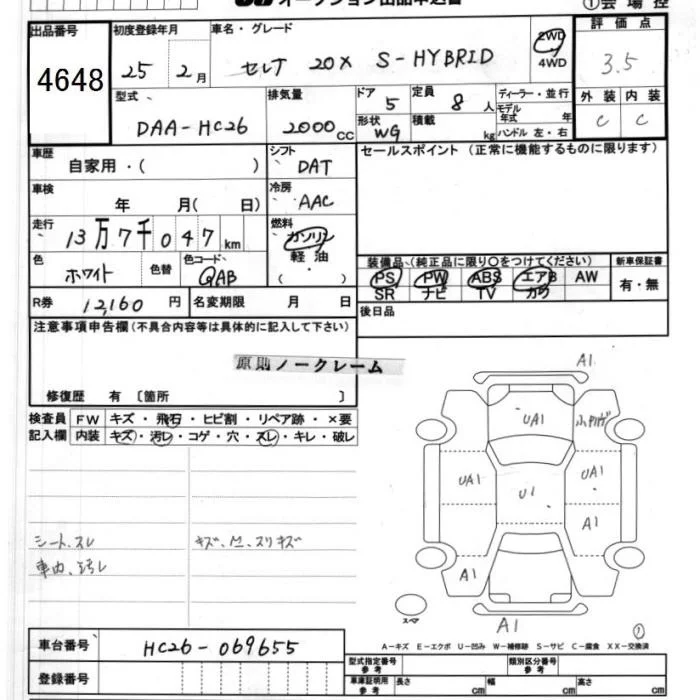 オークション出品申込書
①会場控
出品番号
4648
初度登録年月
25 2月
車名・グレード
セレナ 20X S-HYBRID
2WD
4WD
評価点
3.5
型式
DAA-HC26
排気量
2000CC
ドア
5
定員
8人
形状
WG
積載
kg
ディーラー・並行
モデル年式 年
ハンドル 左・右
外装 内装
C C
車歴
自家用・( )
シフト
DAT
セールスポイント (正常に機能するものに限ります)
車検
年 月( 日)
冷房
AAC
走行
13万7千047km
燃料
ガソリン
軽油
( ・ )
色
ホワイト
色替
色コード
QAB
装備品 (純正品に限り○をつけてください)
PS PW ABS エアB AW
SR ナビ TV カワ
新車保証書
有・無
R券 12,160円
名変期限 月 日
後日品
注意事項申告欄(不具合内容等は具体的に記入して下さい)
原則ノークレーム
修復歴 有〔箇所 〕
検査員
記入欄
FW キズ・飛石・ヒビ割・リペア跡・×要
内装 キズ・汚レ・コゲ・穴・スレ・キレ・破レ
シート、スレ
車内、汚レ
A1
UA1
UA1
U1
UA1
A1
A1
A1
スペア
①
A-キズ E-エクボ U-凹み W-補修跡 S-サビ C-腐食 XX-交換済
車台番号
HC26-069655
登録番号
型式指定番号
参考
類別区分番号
参考
車庫証明用
参考
長さ cm
幅 cm
高さ cm